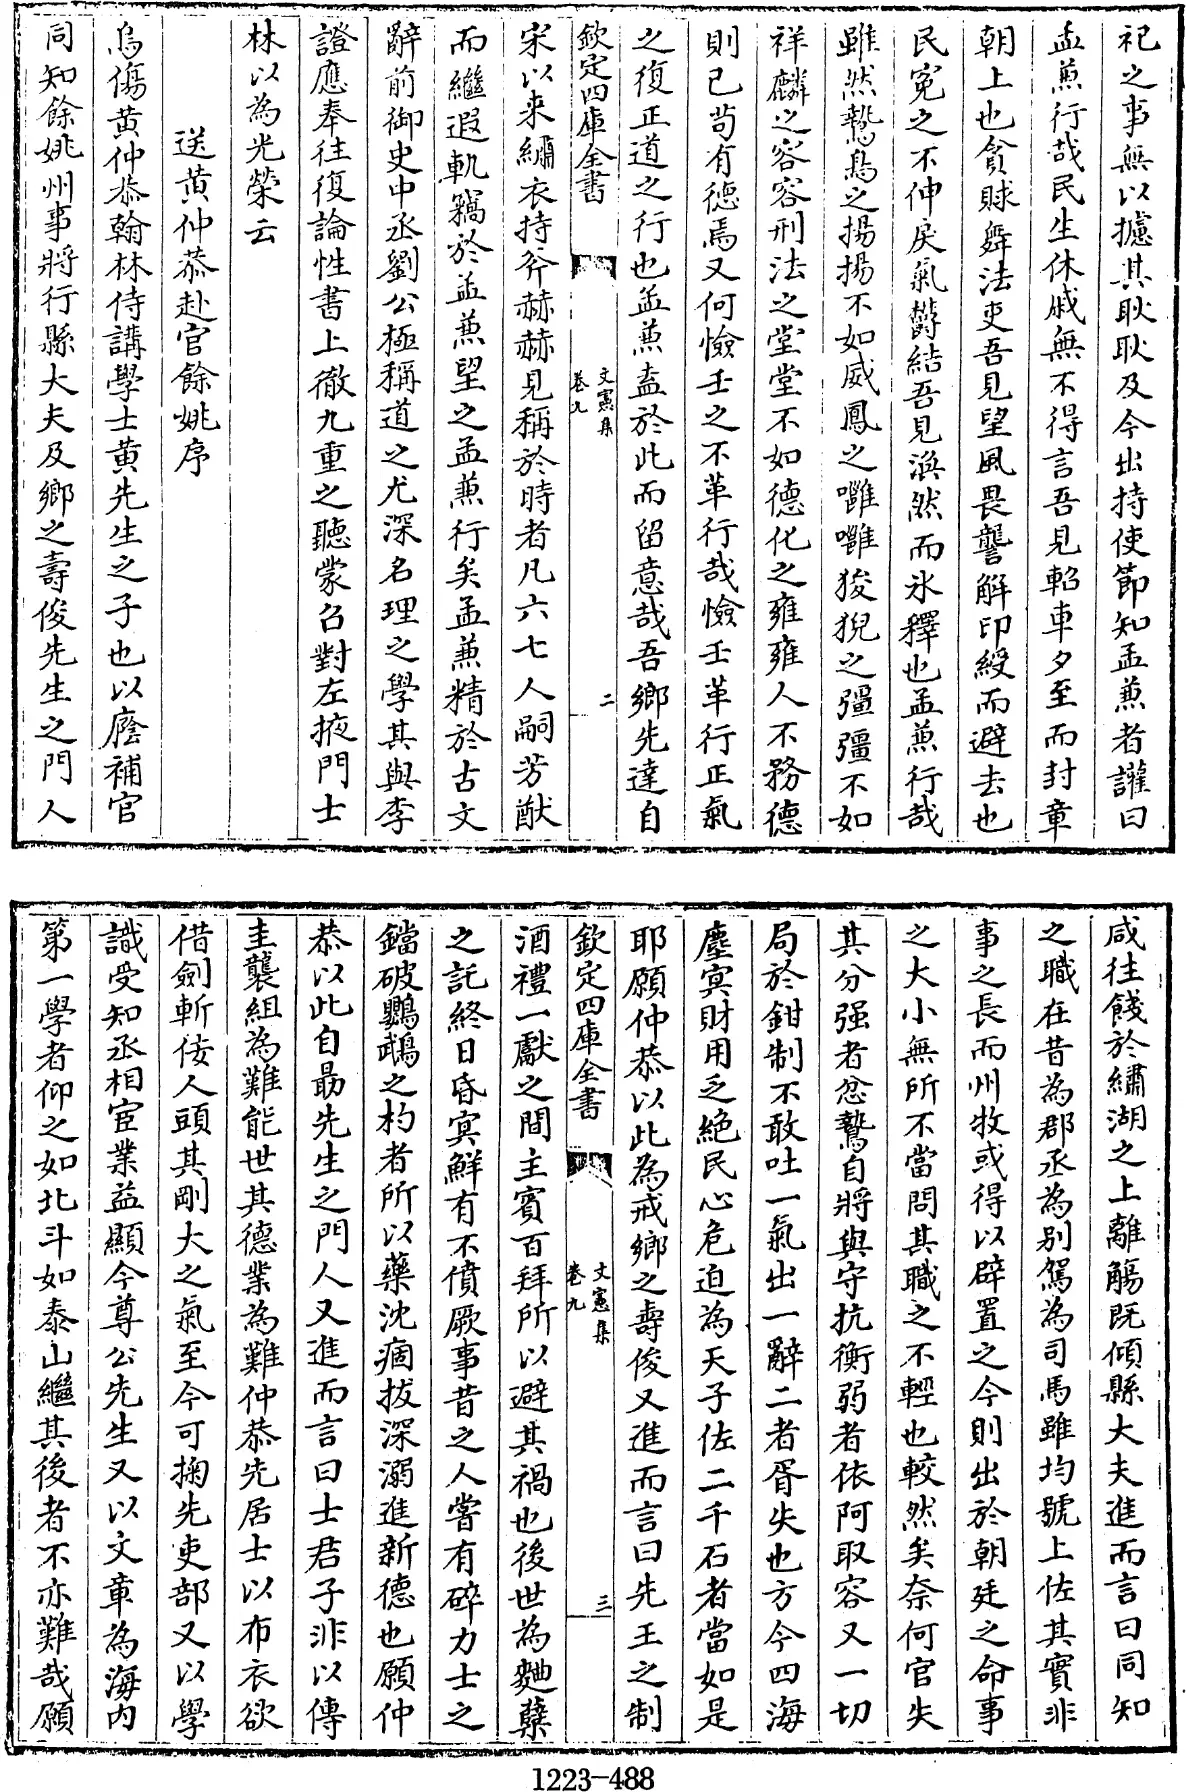 祀之事無以攄其耿耿及今出持使節知孟兼者讙曰
孟兼行哉民生休戚無不得言吾見軺車夕至而封章
朝上也貪賕舞法吏吾見望風畏讋解印綬而避去也
民寃之不伸戾氣鬱結吾見渙然而氷釋也孟兼行哉
雖然鷙鳥之揚揚不如威鳳之噰噰狻猊之彊彊不如
祥麟之容容刑法之堂堂不如德化之雍雍人不務德
則已茍有德焉又何憸壬之不革行哉憸壬革行正氣
之復正道之行也孟兼盍於此而留意哉吾鄉先達自
欽定四庫全書
文憲集
卷九
二
宋以来繡衣持斧赫赫見稱於時者凡六七人嗣芳猷
而繼遐軌竊於孟兼望之孟兼行矣孟兼精於古文
辭前御史中丞劉公極稱道之尤深名理之學其與李
證應奉往復論性書上徹九重之聽蒙召對左掖門士
林以為光榮云
送黄仲恭赴官餘姚序
烏傷黄仲恭翰林侍講學士黄先生之子也以廕補官
同知餘姚州事將行縣大夫及鄉之壽俊先生之門人
咸往餞於繡湖之上離觴既傾縣大夫進而言曰同知
之職在昔為郡丞為别駕為司馬雖均號上佐其實非
事之長而州牧或得以辟置之今則出於朝廷之命事
之大小無所不當問其職之不輕也較然矣奈何官失
其分强者忿鷙自將與守抗衡弱者依阿取容又一切
局於鉗制不敢吐一氣出一辭二者胥失也方今四海
塵㝠財用乏絶民心危迫為天子佐二千石者當如是
耶願仲恭以此為戒鄉之壽俊又進而言曰先王之制
欽定四庫全書
文憲集
卷九
三
酒禮一獻之間主賓百拜所以避其禍也後世為麯蘖
之託終日昏㝠鮮有不僨厥事昔之人嘗有碎力士之
鐺破鸚鵡之杓者所以藥沈痼拔深溺進新德也願仲
恭以此自勗先生之門人又進而言曰士君子非以傳
圭襲組為難能世其德業為難仲恭先居士以布衣欲
借劍斬佞人頭其剛大之氣至今可掬先吏部又以學
識受知丞相宦業益顯今尊公先生又以文章為海内
第一學者仰之如北斗如泰山繼其後者不亦難哉願
1223-488